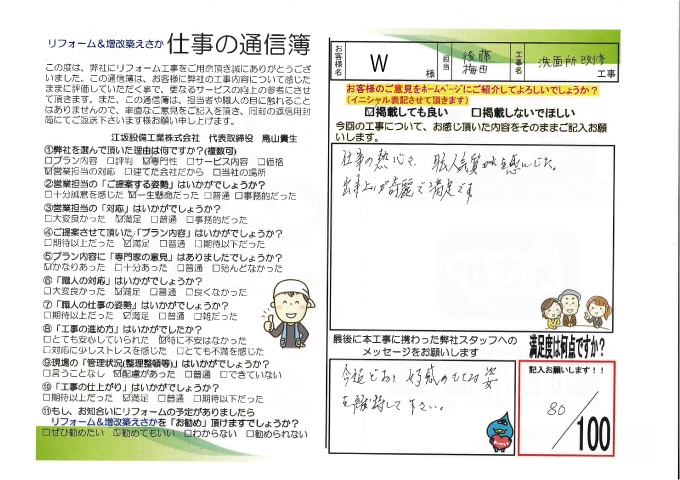 リフォーム&増改築えさか 仕事の通信簿
この度は、弊社にリフォーム工事をご用命頂き誠にありがとうござ
いました。この通信簿は、お客様に弊社の工事内容について感じた
ままに評価していただく事で、更なるサービスの向上の参考にさせ
て頂きます。また、この通信簿は、担当者や職人の目に触れること
はありませんので、率直なご意見をご記入を頂き、同封の返信用封
筒にてご返送下さいます様お願い申し上げます。
江坂設備工業株式会社 代表取締役 鳥山貴生
①弊社を選んで頂いた理由は何ですか?(複数可)
□プラン内容 □評判 ☑専門性 □サービス内容 □価格
☑営業担当の対応 □建てた会社だから □当社の場所
②営業担当の「ご提案する姿勢」はいかがでしょうか?
□十分誠意を感じた ☑一生懸命だった □普通 □事務的だった
③営業担当の「対応」はいかがでしょうか?
□大変良かった ☑満足 □普通 □事務的だった
④ご提案させて頂いた「プラン内容」はいかがでしょうか?
□期待以上だった ☑満足 □普通 □期待以下だった
⑤プラン内容に「専門家の意見」はありましたでしょうか?
☑かなりあった □十分あった □普通 □殆んどなかった
⑥「職人の対応」はいかがでしょうか?
□大変良かった ☑満足 □普通 □良くなかった
⑦「職人の仕事の姿勢」はいかがでしょうか?
□期待以上だった ☑満足 □普通 □雑だった
⑧「工事の進め方」はいかがでしたか?
□とても安心していられた ☑特に不安はなかった
□対応に少しストレスを感じた □とても不満を感じた
⑨現場の「管理状況(整理整頓等)」はいかがでしょうか?
□言うことなし ☑配慮があった □普通 □できていない
⑩「工事の仕上がり」はいかがでしょうか?
□期待以上だった ☑満足 □普通 □期待以下だった
⑪もし、お知合いにリフォームの予定がありましたら
リフォーム&増改築えさかを「お勧め」頂けますでしょうか?
□ぜひ勧めたい ☑勧めてもいい □わからない □勧められない
お客様名 W 様 担当 後藤 梅田 工事名 洗面所改修 工事
お客様のご意見をホームページにご紹介してよろしいでしょうか?
(イニシャル表記させて頂きます)
☑掲載しても良い □掲載しないでほしい
今回の工事について、お感じ頂いた内容をそのままご記入お願
いします。
仕事の熱心さ、職人気質を感じた。
出来上りが綺麗で満足です
最後に本工事に携わった弊社スタッフへの
メッセージをお願いします
今迄どおり 好感のもてる姿
を維持して下さい。
満足度は何点ですか?
記入お願いします!!
80/100